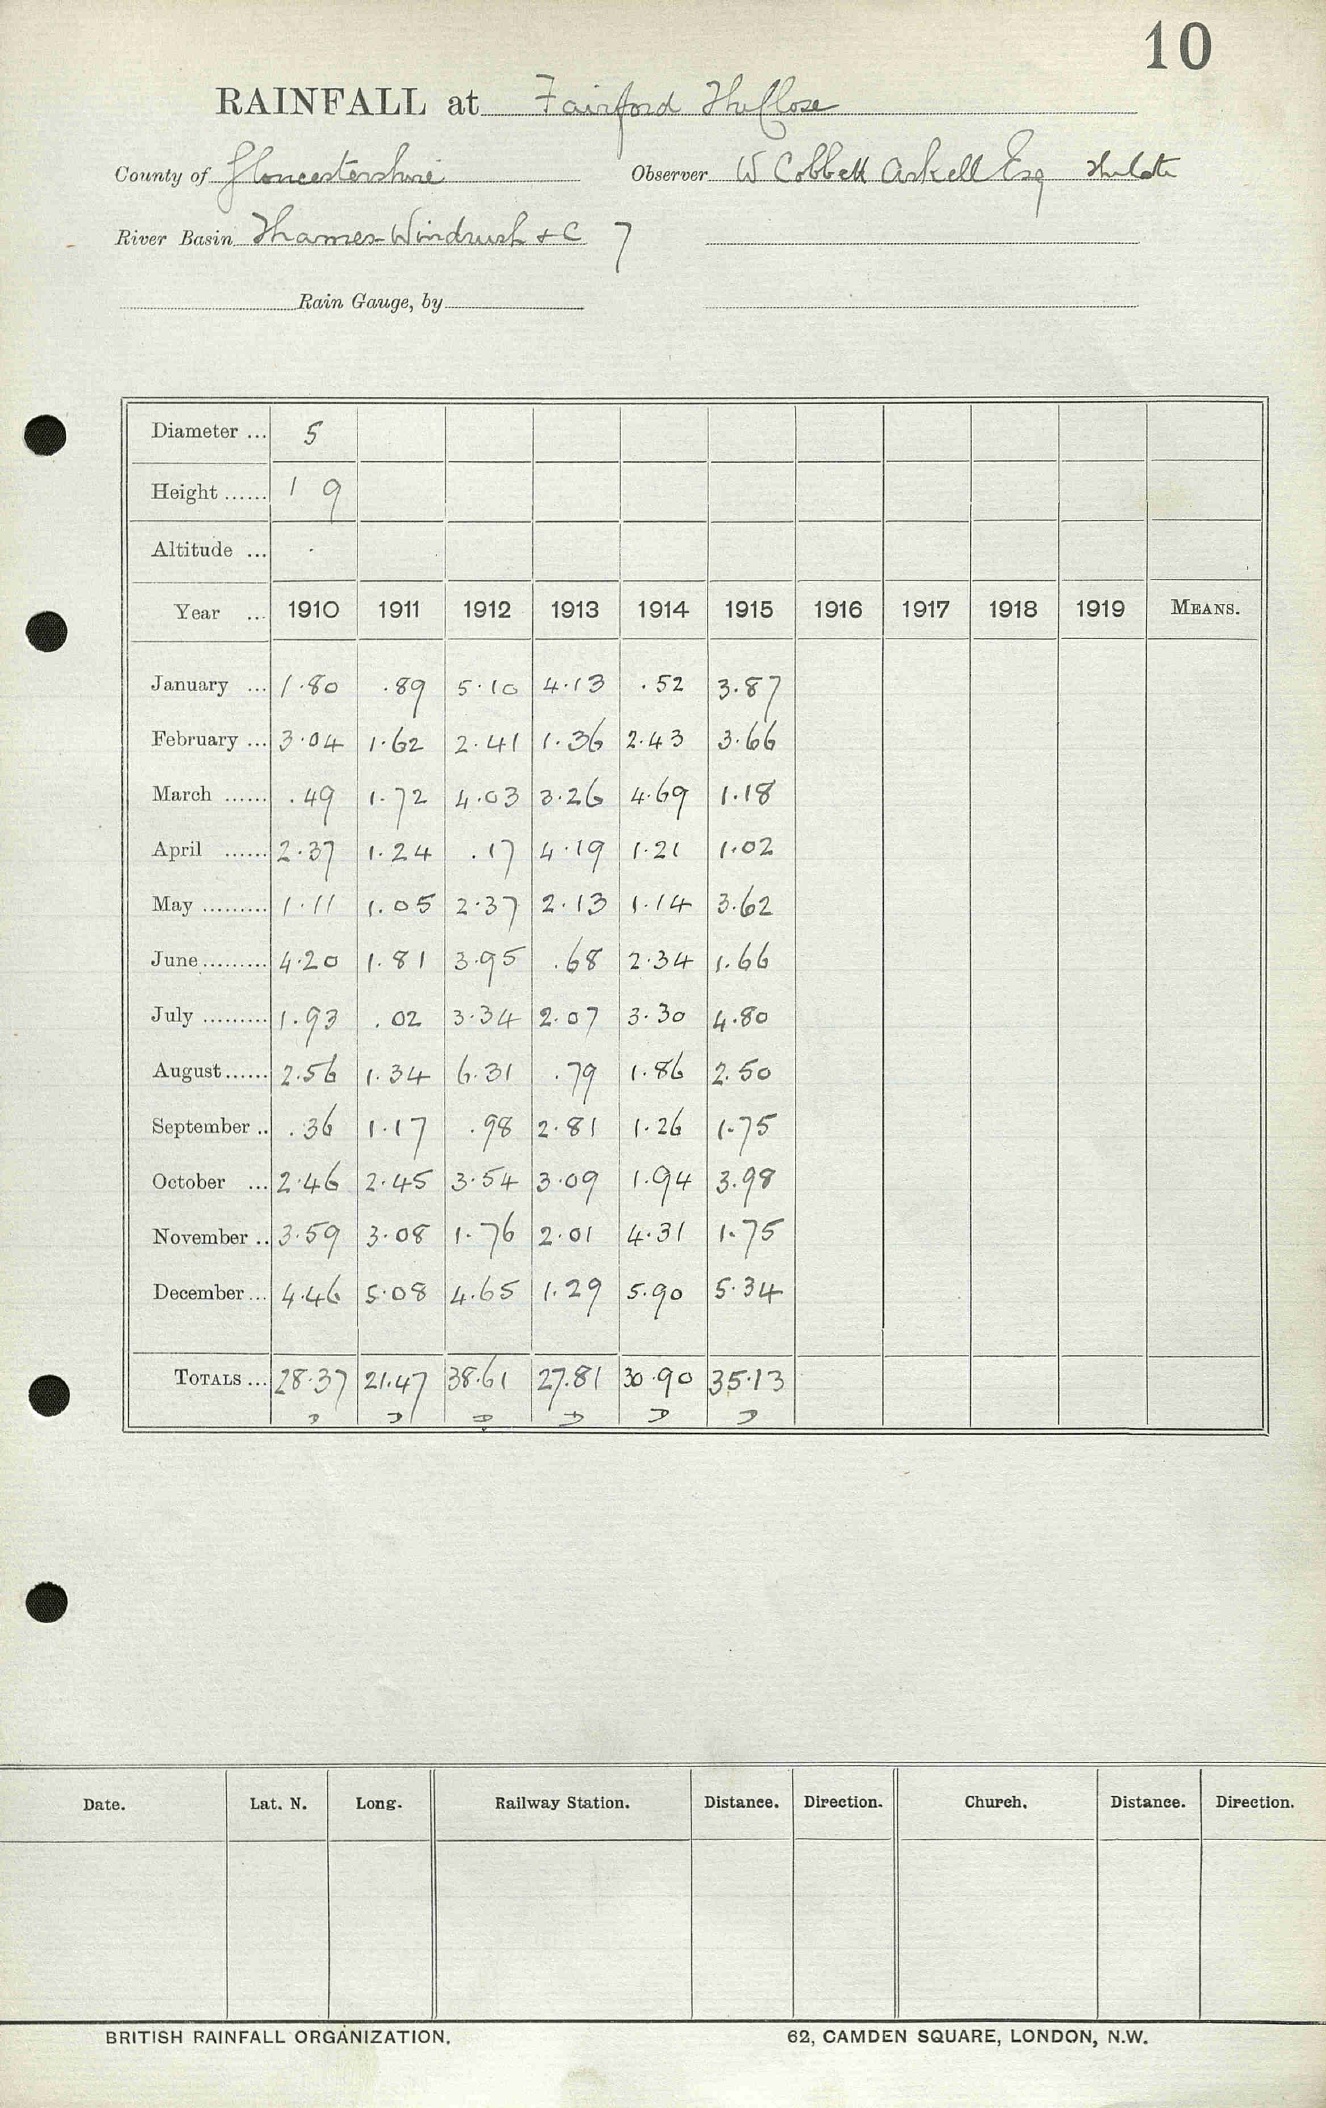 10
RAINFALL at Fairford The Close
County of Gloucestershire Observer W Cobbett Arkell Esq
River Basin Thames-Windrush &c 7
Rain Gauge, by
Diameter ... 5
Height ...... 1 9
Altitude ...
Year ... 1910 1911 1912 1913 1914 1915 1916 1917 1918 1919 MEANS.
January ... 1.80 .89 5.10 4.13 .52 3.87
February ... 3.04 1.62 2.41 1.36 2.43 3.66
March ...... .49 1.72 4.03 3.26 4.69 1.18
April ...... 2.37 1.24 .17 4.19 1.21 1.02
May ......... 1.11 1.05 2.37 2.13 1.14 3.62
June ......... 4.20 1.81 3.95 .68 2.34 1.66
July ......... 1.93 .02 3.34 2.07 3.30 4.80
August ...... 2.56 1.34 6.31 .79 1.86 2.50
September .. .36 1.17 .98 2.81 1.26 1.75
October ... 2.46 2.45 3.54 3.09 1.94 3.98
November .. 3.59 3.08 1.76 2.01 4.31 1.75
December ... 4.46 5.08 4.65 1.29 5.90 5.34
TOTALS ... 28.37 21.47 38.61 27.81 30.90 35.13
Date. Lat. N. Long. Railway Station. Distance. Direction. Church. Distance. Direction.
BRITISH RAINFALL ORGANIZATION. 62, CAMDEN SQUARE, LONDON, N.W.